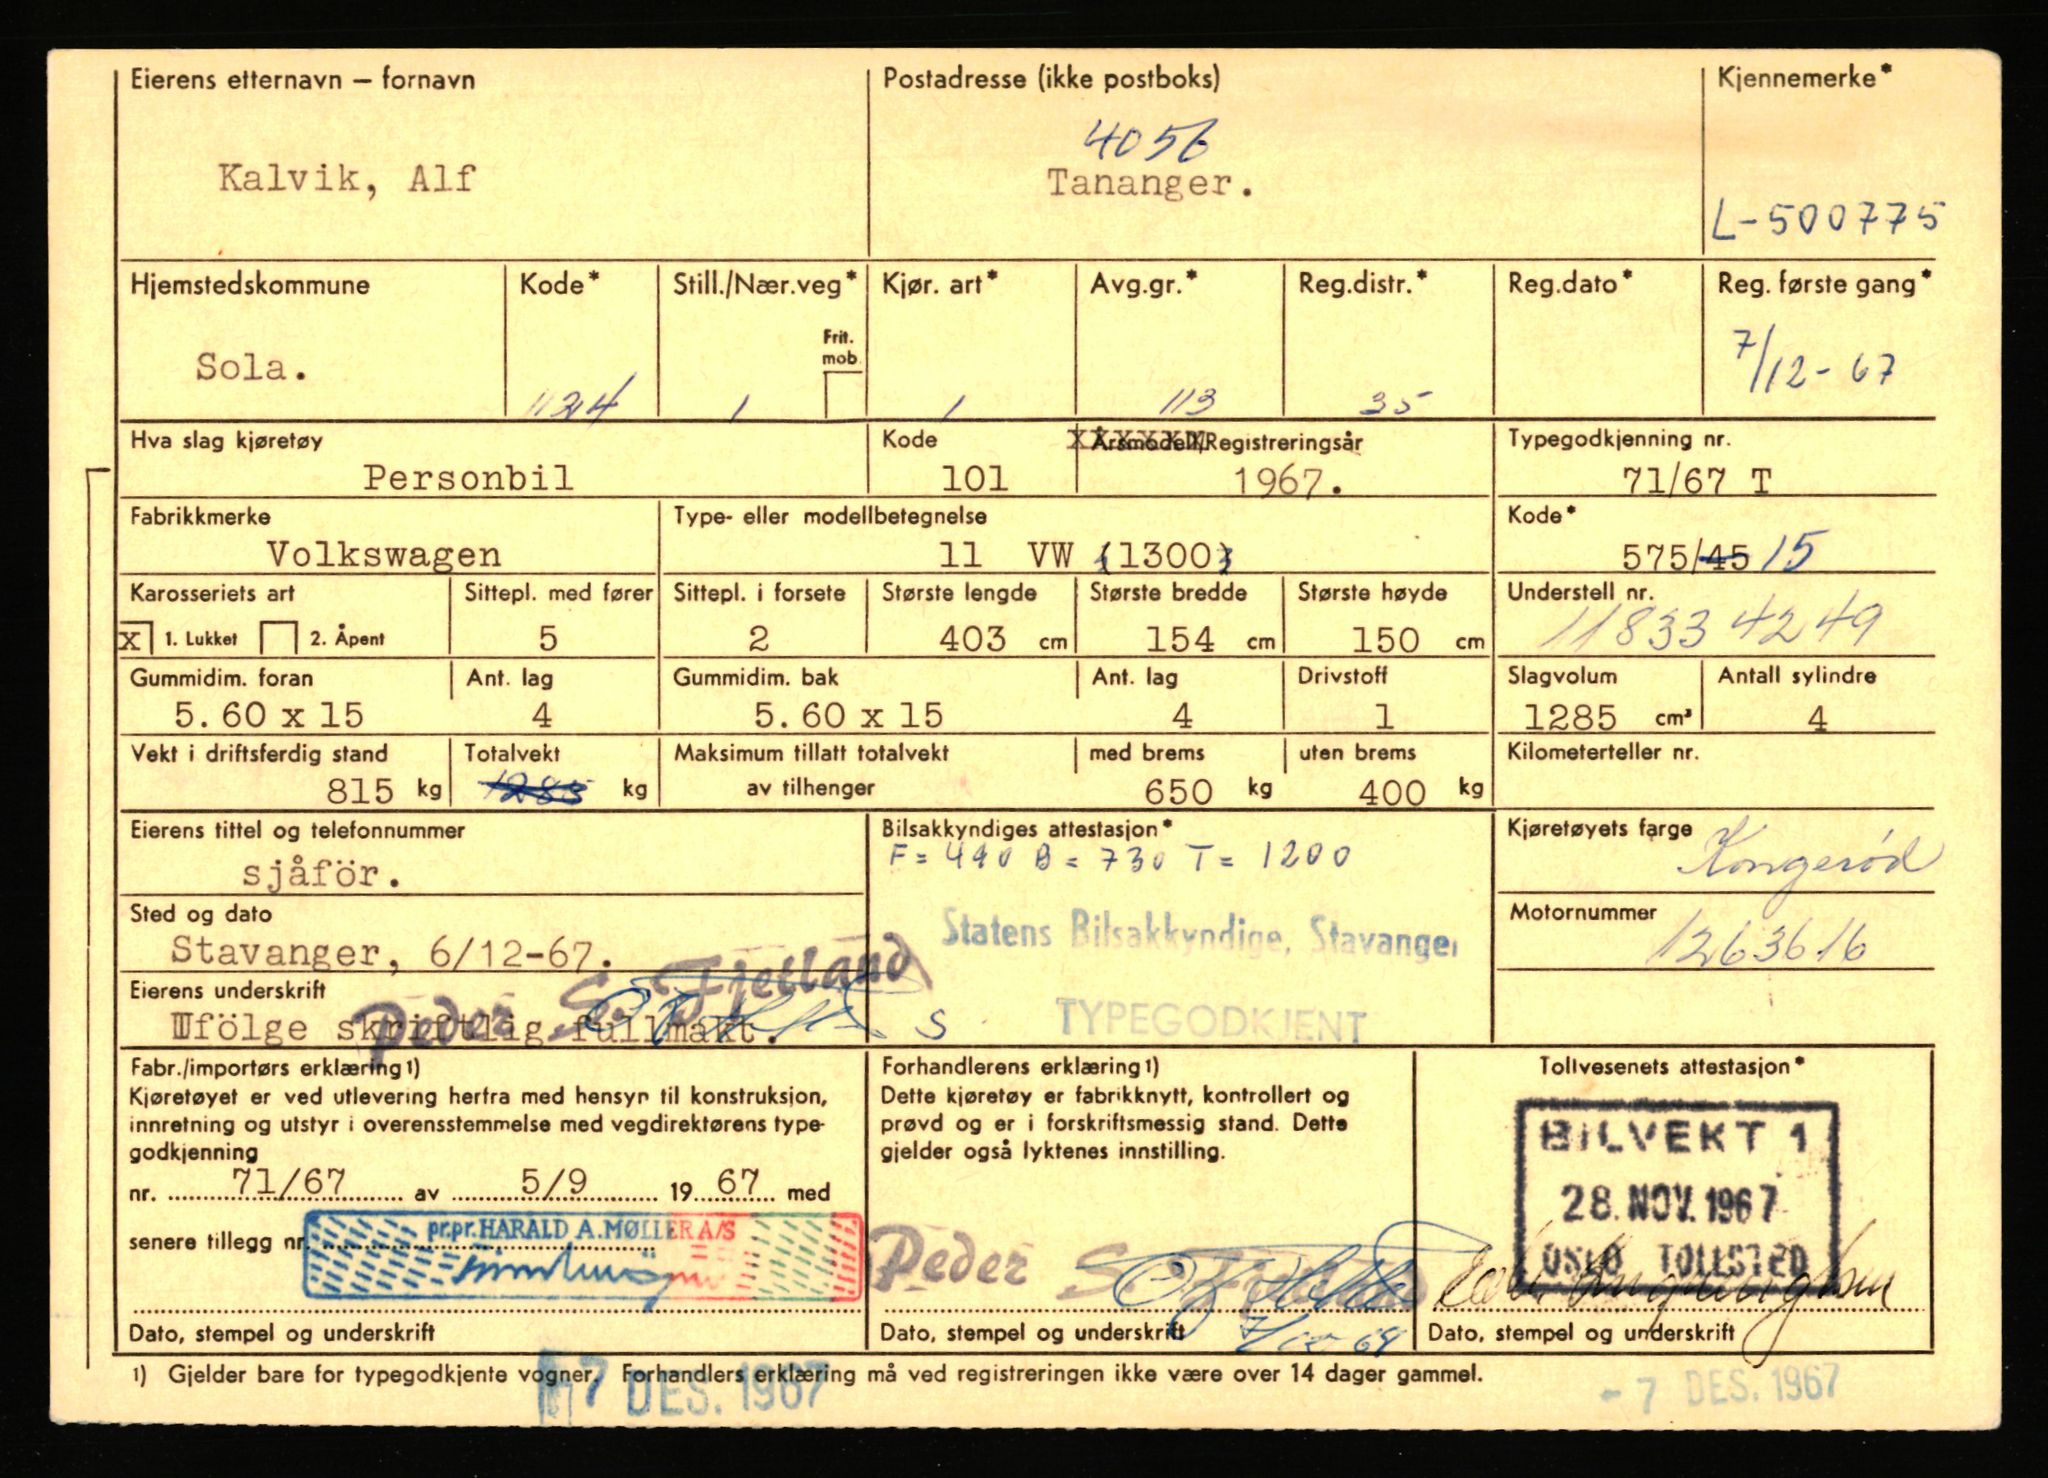 Eierens etternavn — fornavn
Postadresse (ikke postboks)
Kjennemerke*
4056
Kalvik, Alf
Tananger.
L-500775
Hjemstedskommune
Kode*
Still./Nær.veg*
Kjør. art*
Avg.gr.*
Reg.distr.*
Reg.dato*
Reg. første gang*
Frit. mob.
Sola.
1124
1
1
113
35
7/12-67
Hva slag kjøretøy
Kode
Årsmodell/Registreringsår
Typegodkjenning nr.
Personbil
101
1967.
71/67 T
Fabrikkmerke
Type- eller modellbetegnelse
Kode*
Volkswagen
11 VW (1300)
575/45 15
Karosseriets art
Sittepl. med fører
Sittepl. i forsete
Største lengde
Største bredde
Største høyde
Understell nr.
x 1. Lukket
2. Åpent
5
2
403 cm
154 cm
150 cm
118334249
Gummidim. foran
Ant. lag
Gummidim. bak
Ant. lag
Drivstoff
Slagvolum
Antall sylindre
5.60 x 15
4
5.60 x 15
4
1
1285 cm³
4
Vekt i driftsferdig stand
Totalvekt
Maksimum tillatt totalvekt
med brems
uten brems
Kilometerteller nr.
815 kg
1285 kg
av tilhenger
650 kg
400 kg
Eierens tittel og telefonnummer
Bilsakkyndiges attestasjon*
Kjøretøyets farge
F = 490 B = 730 T = 1200
sjåför.
Kongerød
Sted og dato
Motornummer
Stavanger, 6/12-67.
Statens Bilsakkyndige, Stavanger
1263616
Eierens underskrift
Peder S. Fjetland
Ifölge skriftlig fullmakt.
S
TYPEGODKJENT
Fabr./importørs erklæring1)
Forhandlerens erklæring1)
Tollvesenets attestasjon*
Kjøretøyet er ved utlevering herfra med hensyn til konstruksjon,
innretning og utstyr i overensstemmelse med vegdirektørens type-
godkjenning
nr. 71/67 av 5/9 1967 med
senere tillegg nr.
pr.pr. HARALD A. MØLLER A/S
Dette kjøretøy er fabrikknytt, kontrollert og
prøvd og er i forskriftsmessig stand. Dette
gjelder også lyktenes innstilling.
Peder S. Fjetland
BILVEKT 1
28. NOV. 1967
OSLO TOLLSTED
Dato, stempel og underskrift
Dato, stempel og underskrift
Dato, stempel og underskrift
1) Gjelder bare for typegodkjente vogner. Forhandlers erklæring må ved registreringen ikke være over 14 dager gammel.
7 DES. 1967
- 7 DES. 1967